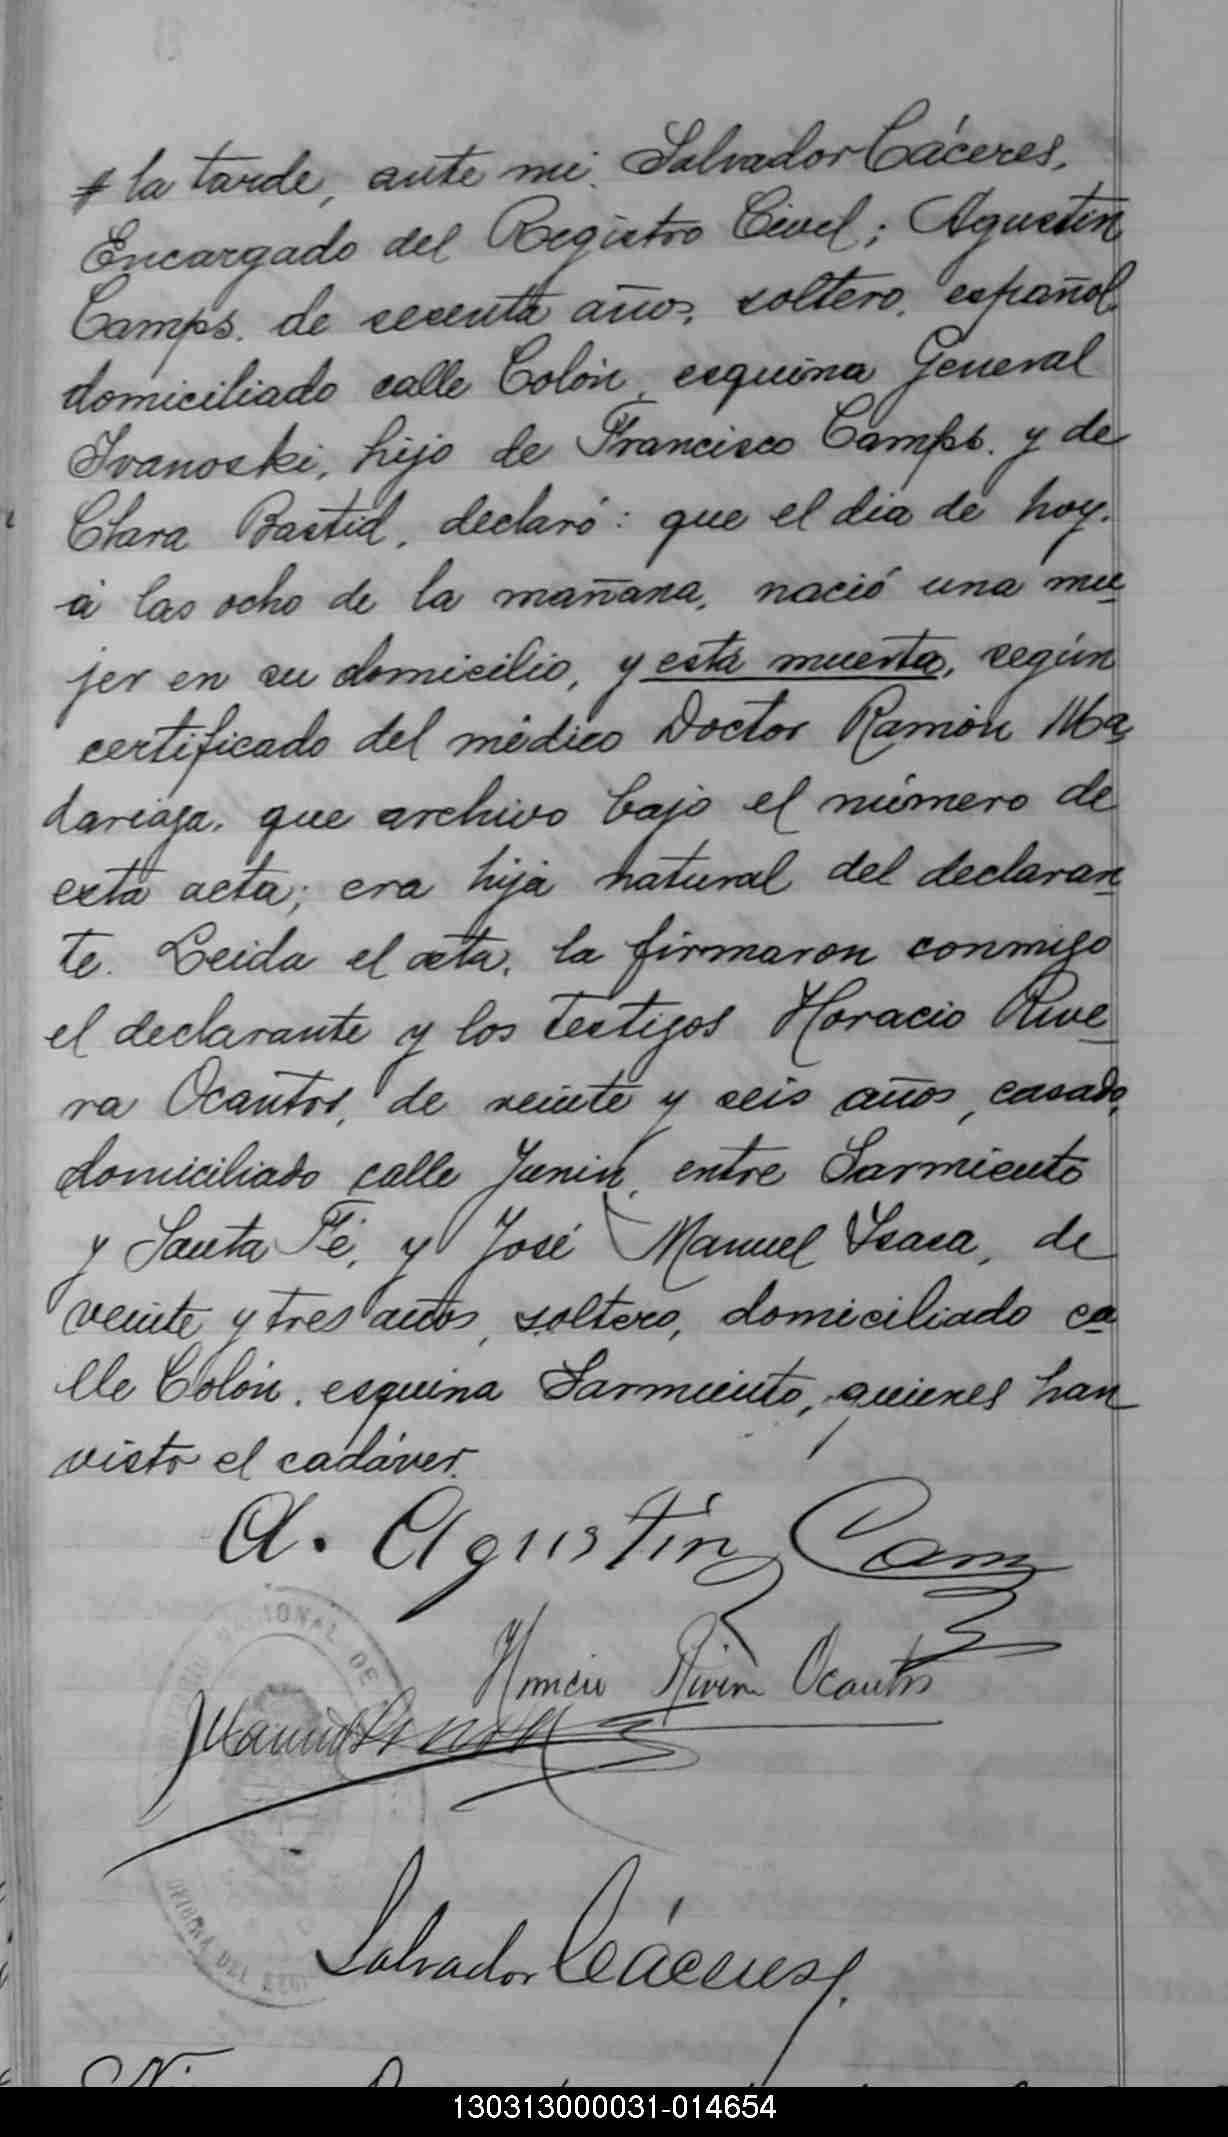 la tarde, ante mi, Salvador Cáceres,
Encargado del Registro Civil; Agustin
Camps, de sesenta años, soltero, español,
domiciliado calle Colón, esquina General
Ivanoski, hijo de Francisco Camps, y de
Clara Bastid, declaró: que el dia de hoy,
á las ocho de la mañana, nació una mu-
jer en su domicilio, y está muerta, según
certificado del médico Doctor Ramón Ma-
dariaga, que archivo bajo el número de
esta acta; era hija natural del declaran-
te. Leida el acta, la firmaron conmigo
el declarante y los testigos Horacio Rive-
ra Ocantos, de veinte y seis años, casado,
domiciliado calle Junin, entre Sarmiento
y Santa Fé, y José Manuel Isasa, de
veinte y tres años, soltero, domiciliado ca-
lle Colón, esquina Sarmiento, quienes han
visto el cadáver.
A. Agustín Cam
Horacio Rivera Ocantos
Manuel
Salvador Cáceres
NACIONAL DE
OFICINA DEL
130313000031-014654